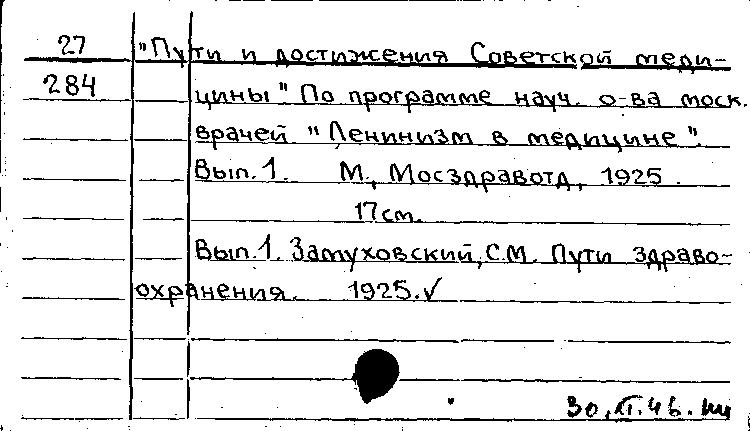 27 "Пути и достижения Советской меди-
284 цины" По программе науч. о-ва моск.
врачей "Ленинизм в медицине".
Вып. 1. М., Мосздравотд, 1925.
17 см.
Вып. 1. Замуховский, С.М. Пути здраво-
охранения. 1925.✓
30.XI.46.